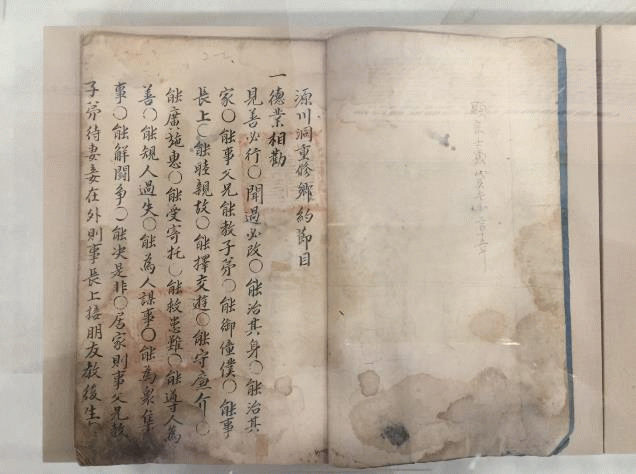 源川洞重修鄉約節目
一德業相勸
見善必行○聞過必改○能治其身○能治其
家○能事父兄能教子弟○能御僮僕○能事
長上○能睦親故○能擇交遊○能守廉介○
能廣施惠○能受寄托○能救患難○能導人為
善○能規人過失○能為人謀事○能為衆集
事○能解鬪爭○能决是非○居家則事父兄教
子弟待妻妾在外則事長上接朋友教後生